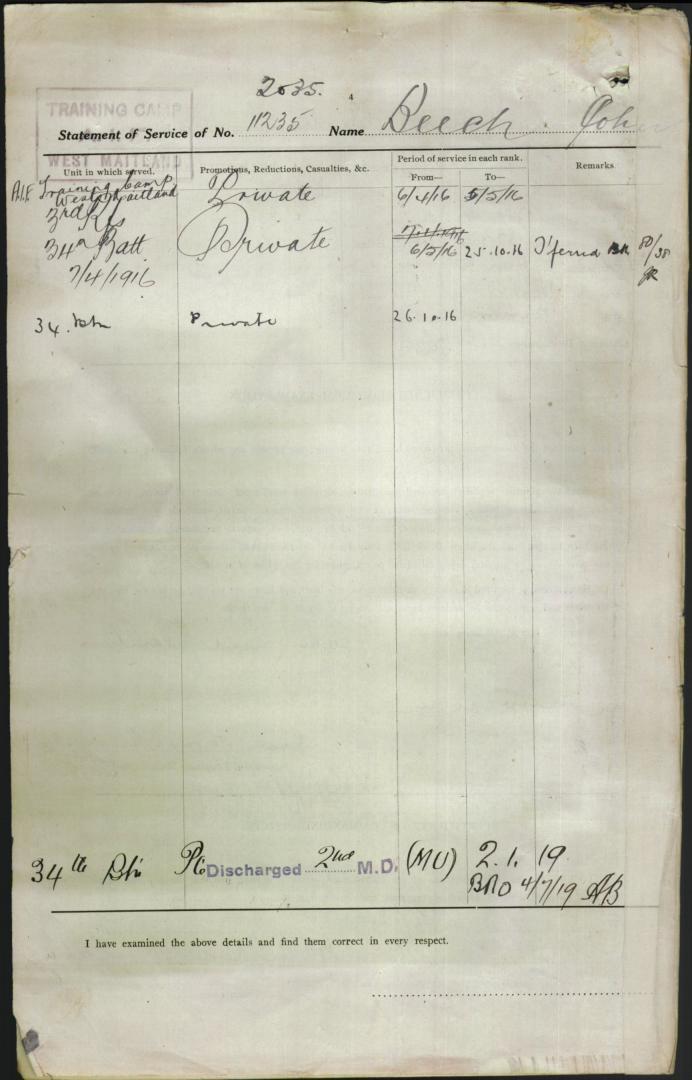 2035.
4
TRAINING CAMP
WEST MAITLAND
Statement of Service of No. 11235 Name Beech John
Unit in which served. Promotions, Reductions, Casualties, &c. Period of service in each rank. Remarks
From— To—
A.I.F Training Camp West Maitland Private 6/4/16 5/5/16
3rd
34th Batt Private 6/5/16 25.10.16 T'ferred 80/38
7/4/1916
34. Btn Private 26.10.16
34th Btn Pte Discharged 2nd M.D. (MU) 2.1.19
BRO 4/7/19 AB
I have examined the above details and find them correct in every respect.